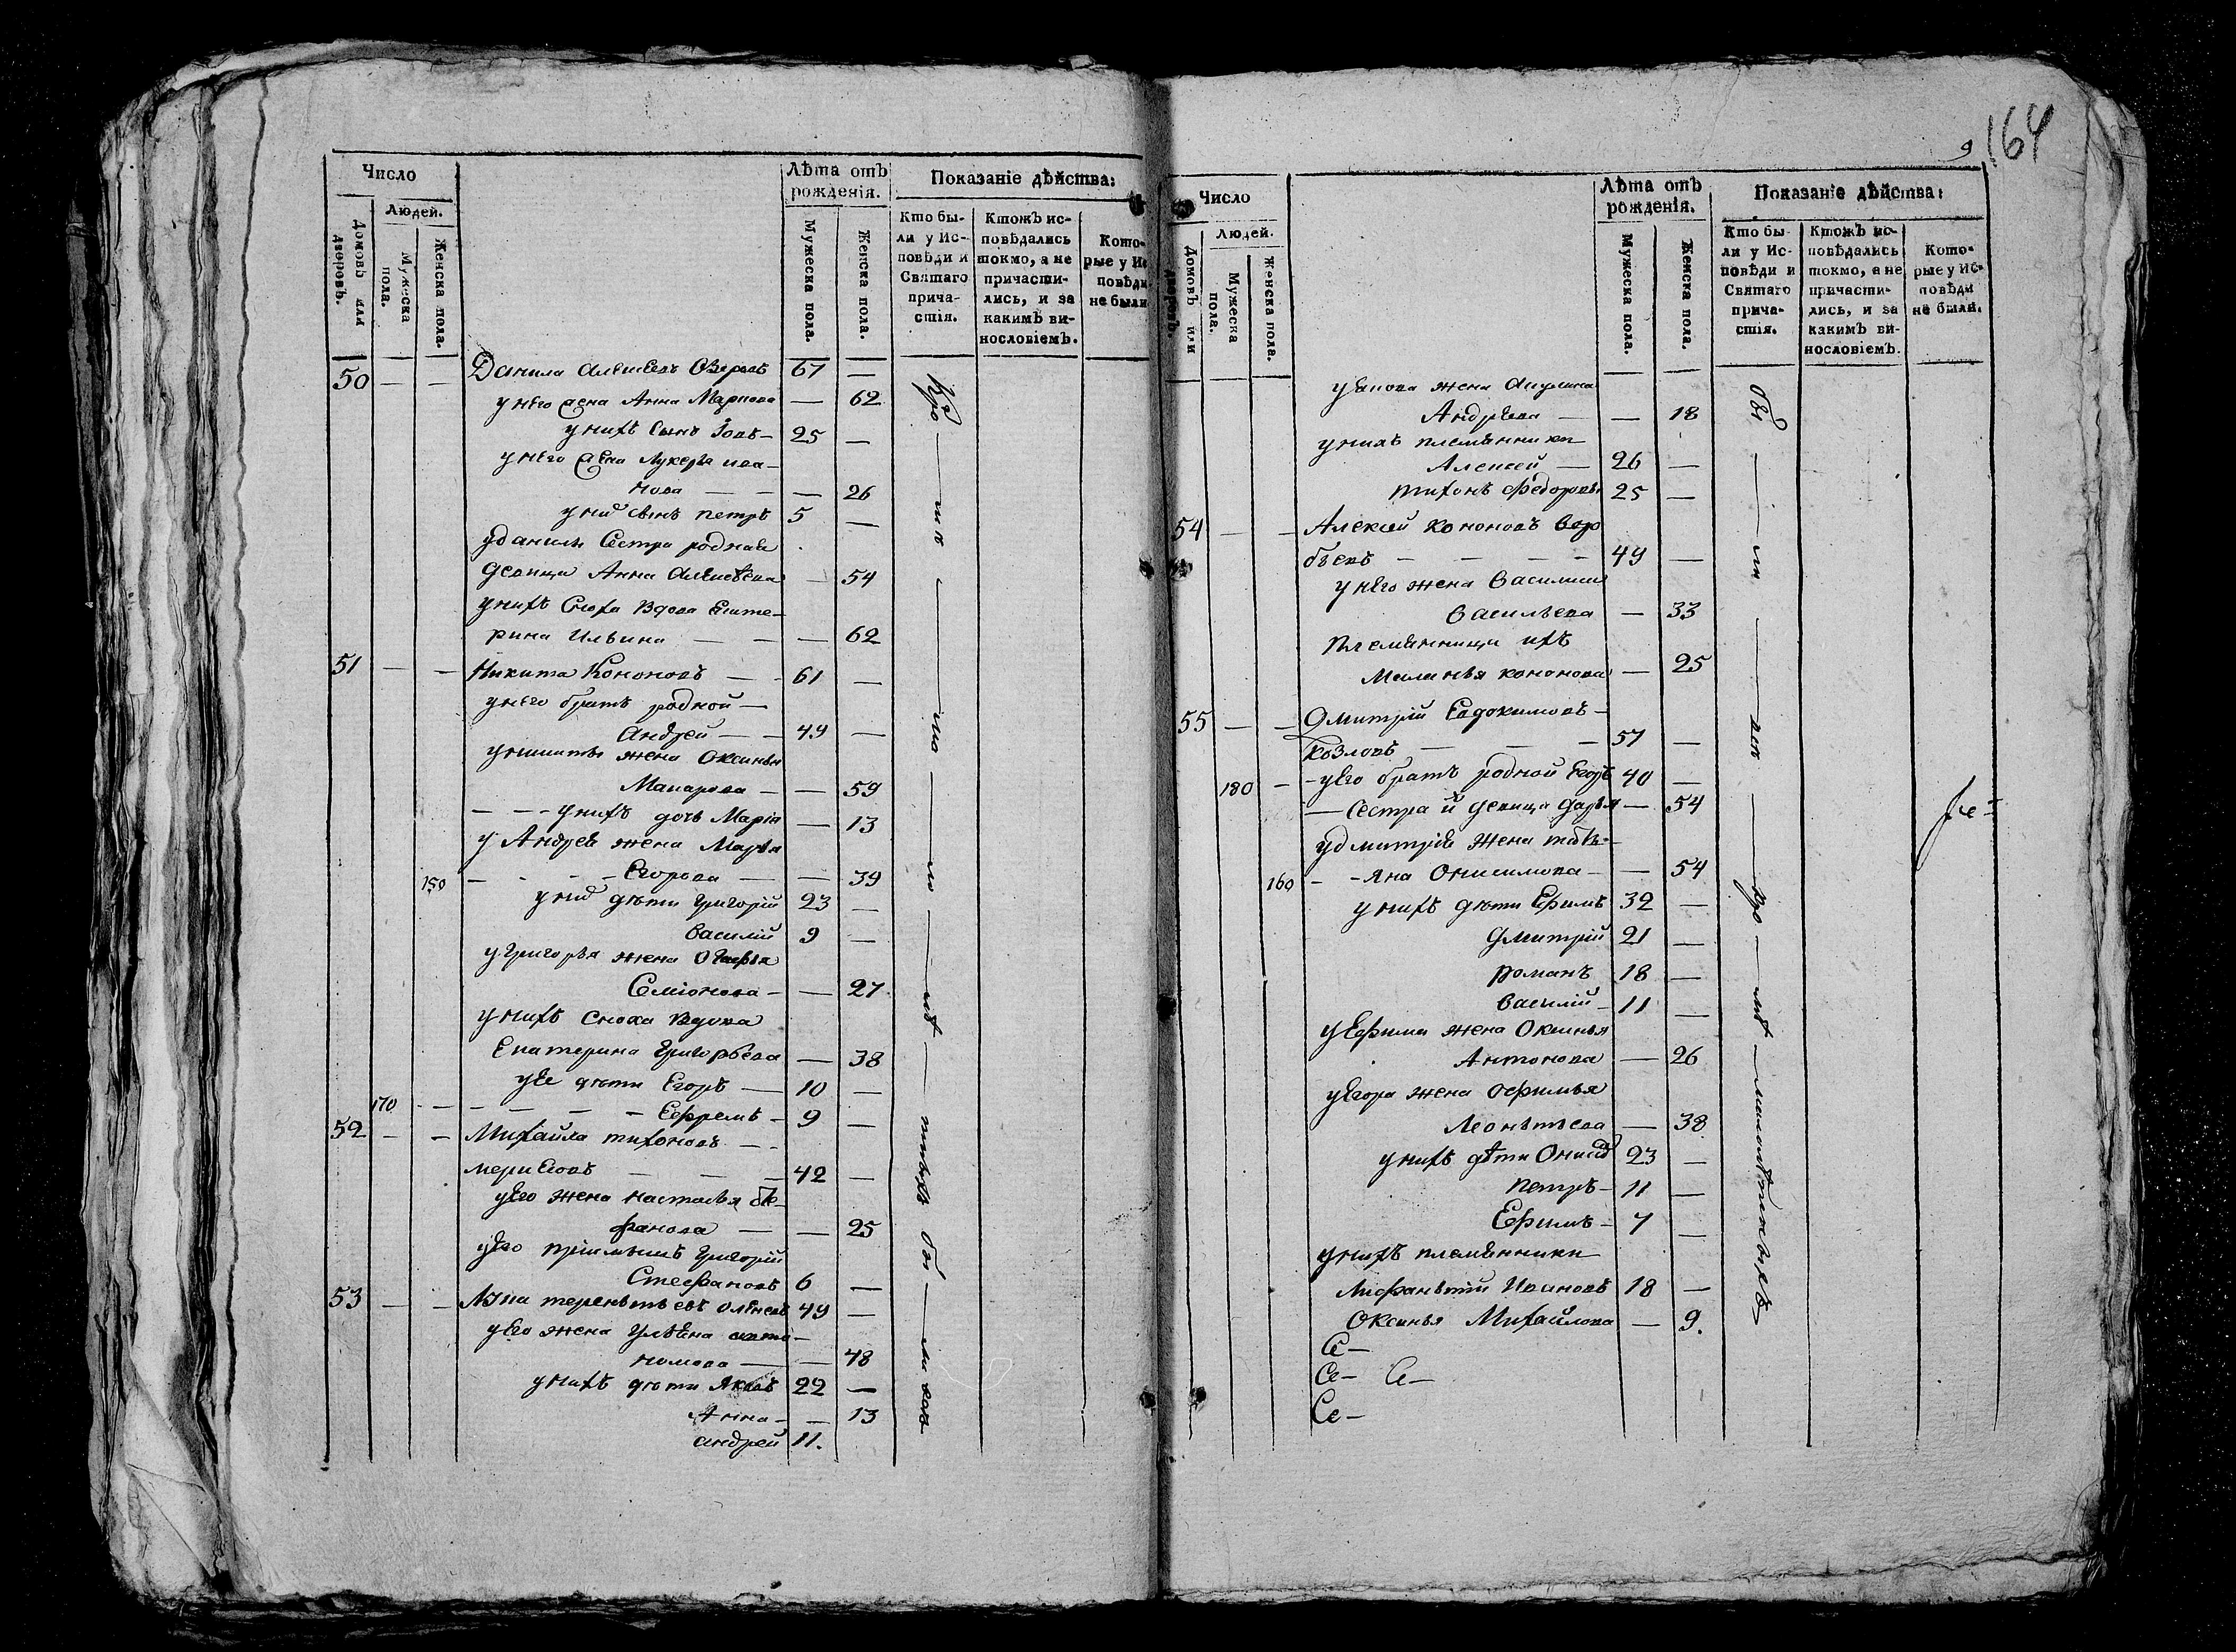 Число
Людей.
Домовъ или дворовъ.
Мужеска пола.
Женска пола.
Лѣта отъ рожденія.
Мужеска пола.
Женска пола.
Показаніе дѣйства:
Кто бы-
ли у Ис-
повѣди и
Святаго
прича-
стія.
Ктожъ ис-
повѣдались
токмо, а не
причасти-
лись, и за
какимъ ви-
нословіемъ.
Кото-
рые у Ис
повѣди
не были
50 — — Данила Озеровъ 67 —
у него жена Анна Маркова — 62
у нихъ сынъ Іовъ — 25 —
у него жена Лукерья ива-
нова — — — 26
у них сынъ петръ 5 —
у данилы Сестра родная
девица Анна — 54
у нихъ Сноха Вдова Екате-
рина Ильина — — — 62
51 — — Никита Кононовъ — 61 —
у него братъ родной —
Андрей — — 49 —
у никиты жена Оксинья
Макарова — — 59
— — — у нихъ дочь Марія — 13
у Андрея жена Марья
150 — — — — Егорова — — 39
у них дѣти Григорій 23 —
Василій 9 —
у Григорья жена Огафья
Семіонова — — 27
у нихъ Сноха Вдова
Екатерина Григорьева — 38
у ее дѣти Егоръ — 10 —
170 — — — — — — Ефремъ — 9 —
52 — — Михайла тихоновъ —
— — — 42 —
у его жена насталья сте-
фанова — — 25
у его пріимышъ Григорій
Стефановъ 6 —
53 — — терентьевъ 49 —
у его жена Ульяна
— — 48
у нихъ дѣти Яковъ 22 —
Анна — — 13
андрей 11.
9 164
Число
Людей.
Домовъ или дворовъ.
Мужеска пола.
Женска пола.
Лѣта отъ рожденія.
Мужеска пола.
Женска пола.
Показаніе дѣйства:
Кто бы-
ли у Ис-
повѣди и
Святаго
прича-
стія.
Ктожъ ис-
повѣдались
токмо, а не
причасти-
лись, и за
какимъ ви-
нословіемъ.
Кото-
рые у Ис-
повѣди
не были.
у якова жена Акулина
Андрѣева — — 18
у нихъ племянники
Алексей — 26 —
тихонъ федоровы 25 —
54 — — Алексей Кононовъ Вор
бьевъ — — — — 49 —
у него жена Василиса
Васильева — 33
племянница ихъ
Маланья кононова — 25
55 — — Дмитрій Евдокимовъ —
Козловъ — — — 57 —
180 — — у его братъ родной Егоръ 40 —
— Сестра девица дарья — 54
у дмитрія жена татье-
160 — — яна Онисимова — — 54
у нихъ дѣти Ефимъ 32 —
Дмитрій 21 —
романъ 18 —
Василій — 11 —
у Ефима жена Оксинья
Антонова — 26
у Егора жена Офимья
Леонтьева — 38
у нихъ дѣти 23 —
Петръ — 11 —
Ефимъ — 7 —
у нихъ племянники
Ивановъ 18 —
Оксинья Михайлова — 9.
Се —
Се — Се —
Се —